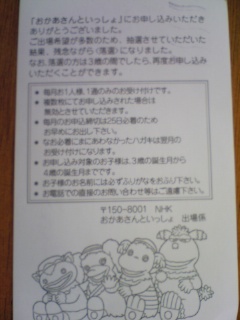 『おかあさんといっしょ』にお申し込みいただき
ありがとうございました。
ご出場希望が多数のため、抽選させていただいた
結果、残念ながら(落選)になりました。
なお、落選の方は3歳の間でしたら、再度お申し込み
いただくことができます。
● 毎月お1人様、1通のみのお受け付けです。
● 複数枚にてお申し込みされた場合は
無効とさせていただきます。
● 毎月のお申込締切は25日必着のため
お早めにお出し下さい。
● なお必着にまにあわなかったハガキは翌月の
お受け付けになります。
● お申し込み対象のお子様は、3歳の誕生月から
4歳の誕生月までです。
● お子様のお名前には必ずふりがなをおふり下さい。
● お電話での直接のお問い合わせ等はご遠慮下さい。
〒150-8001 NHK
おかあさんといっしょ 出場係